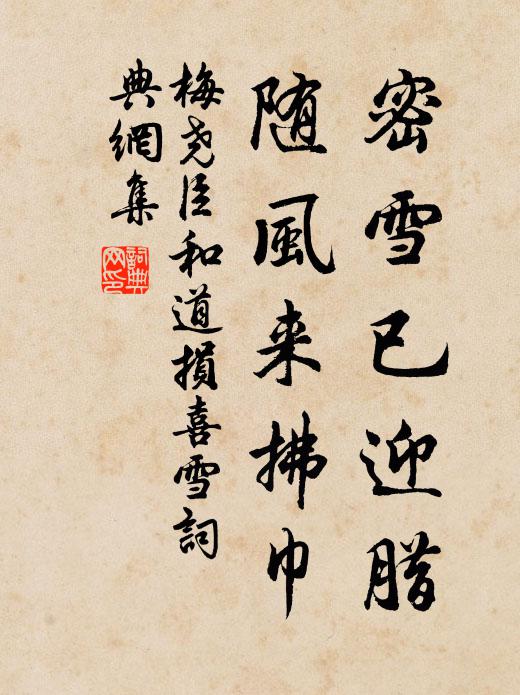 密雪已迎腊
随風来拂巾
梅尧臣和道損喜雪詞
典網集
詞典
网印